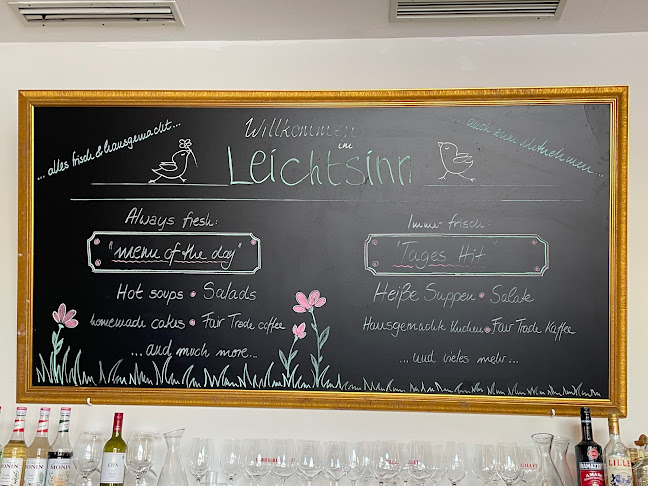 Willkommen
im
Leichtsinn
...alles frisch & hausgemacht...
...auch zum Mitnehmen...
Always fresh:
"menu of the day"
Hot soups • Salads
homemade cakes • Fair Trade coffee
...and much more...
Immer frisch:
"Tages Hit"
Heiße Suppen • Salate
Hausgemachte Kuchen • Fair Trade Kaffee
...und vieles mehr...
MONIN
RAMAZZOTTI
LILLET